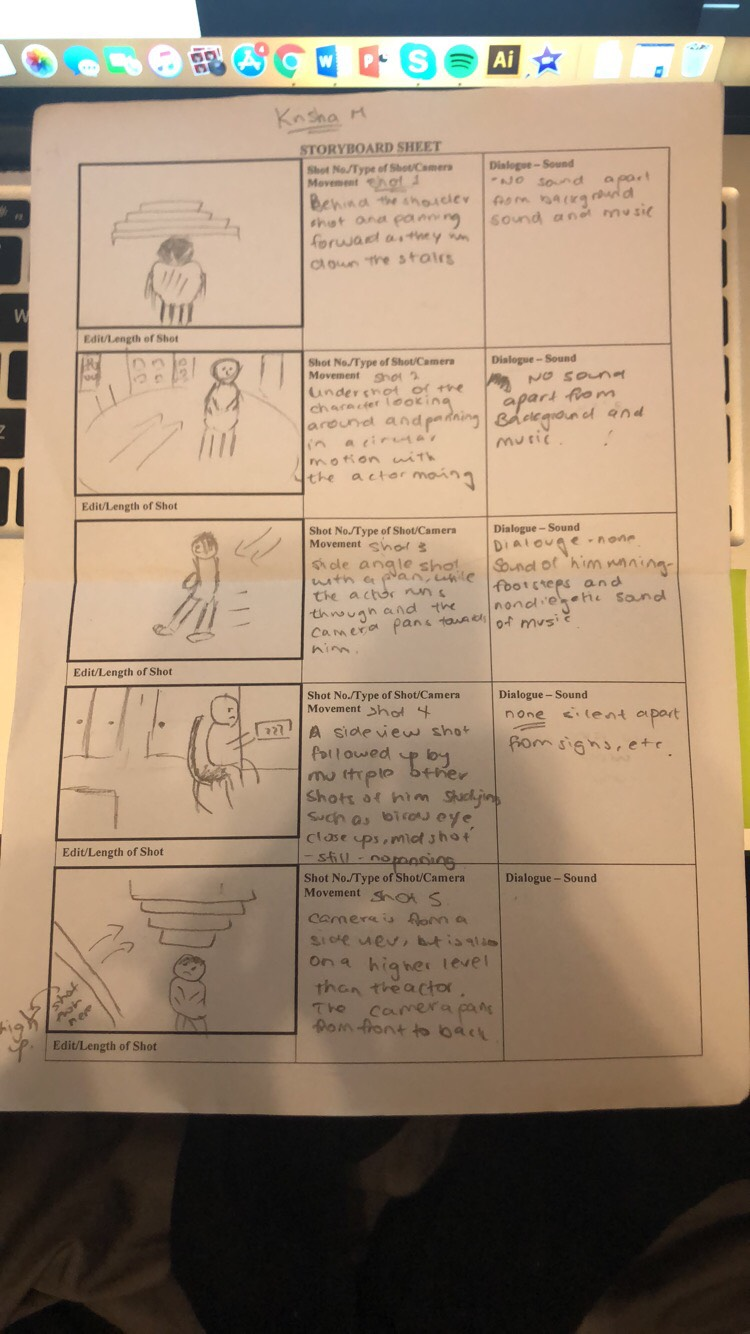 4
W
P
S
Ai
Krisha M
STORYBOARD SHEET
Shot No./Type of Shot/Camera
Movement shot 1
Behind the shoulder
shot and panning
forward as they run
down the stairs
Dialogue – Sound
-No sound apart
from background
sound and music
Edit/Length of Shot
Shot No./Type of Shot/Camera
Movement shot 2
Undershot of the
character looking
around and panning
in a circular
motion with
the actor moving
Dialogue – Sound
No sound
apart from
Background and
music.
Edit/Length of Shot
Shot No./Type of Shot/Camera
Movement shot 3
side angle shot
with a pan, while
the actor runs
through and the
camera pans towards
him.
Dialogue – Sound
Dialouge - none.
Sound of him running-
footsteps and
nondiegetic sound
of music.
Edit/Length of Shot
???
Shot No./Type of Shot/Camera
Movement shot 4
A sideview shot
followed up by
multiple other
shots of him studying
such as birds eye,
close ups, mid shot
- still - no panning
Dialogue – Sound
none silent apart
from sighs, etc.
Edit/Length of Shot
high
up.
shot
from
here
Shot No./Type of Shot/Camera
Movement shot 5
Camera is from a
side view, but is also
on a higher level
than the actor.
The camera pans
from front to back
Dialogue – Sound
Edit/Length of Shot
W
Z